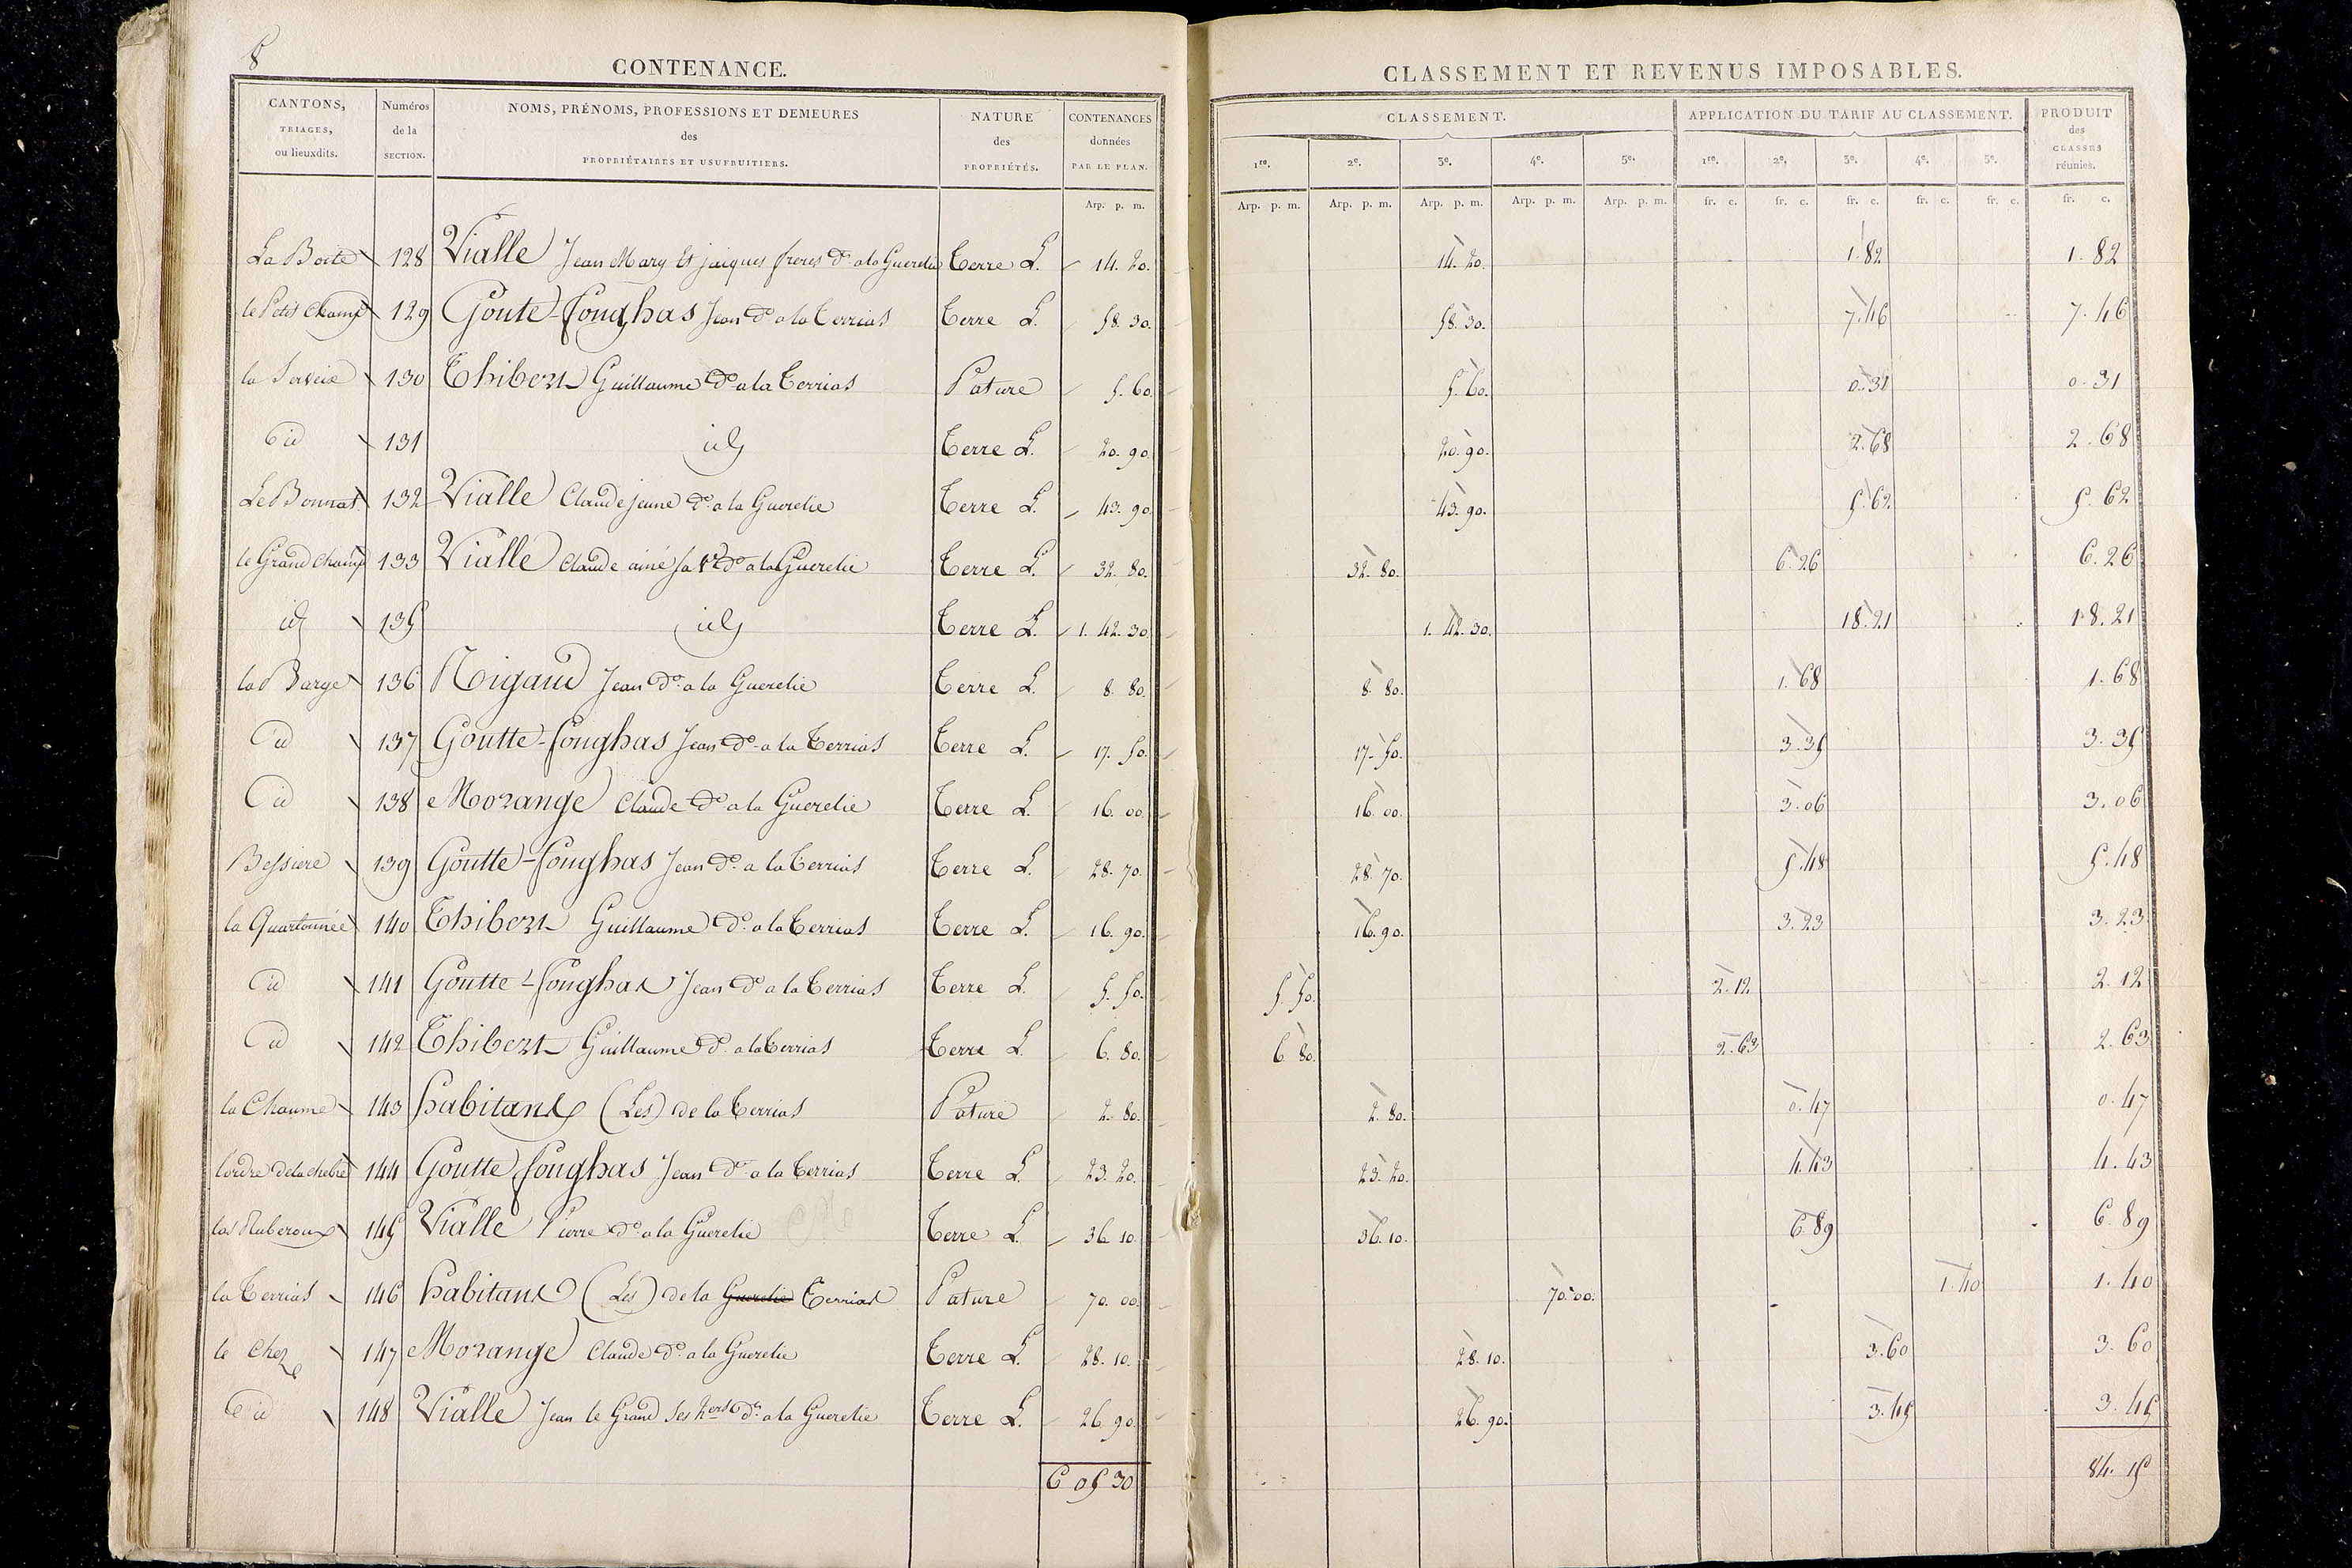 8
CONTENANCE.
CANTONS, TRIAGES, ou lieuxdits.
Numéros de la SECTION.
NOMS, PRÉNOMS, PROFESSIONS ET DEMEURES des PROPRIÉTAIRES ET USUFRUITIERS.
NATURE des PROPRIÉTÉS.
CONTENANCES données PAR LE PLAN.
Arp. p. m.
La Boite 128 Vialle Jean Mary et jacques freres do. a la Guerelie Terre L. 14. 20.
le Petit Champ 129 Goute-fonghas Jean do. a la Terrias Terre L. 58. 30.
la Serveix 130 Thibert Guillaume do. a la Terrias Pature 5. 60.
id 131 id Terre L. 20. 90.
Le Bonnat 132 Vialle Claude jeune do. a la Guerelie Terre L. 43. 90.
le Grand Champ 133 Vialle Claude ainé sa Ve do. a la Guerelie Terre L. 32. 80.
id 135 id Terre L. 1. 42. 30.
la Barge 136 Rigaud Jean do. a la Guerelie Terre L. 8. 80.
id 137 Goutte-fonghas Jean do. a la Terrias Terre L. 17. 50.
id 138 Morange Claude do. a la Guerelie Terre L. 16. 00.
Bessiere 139 Goutte-fonghas Jean do. a la Terrias Terre L. 28. 70.
la Quartonnée 140 Thibert Guillaume do. a la Terrias Terre L. 16. 90.
id 141 Goutte-fonghas Jean do. a la Terrias Terre L. 5. 50.
id 142 Thibert Guillaume do. a la Terrias Terre L. 6. 80.
la Chaume 143 habitants (Les) de la Terrias Pature 2. 80.
144 Goutte fonghas Jean do. a la Terrias Terre L. 23. 20.
145 Vialle Pierre do. a la Guerelie Terre L. 36. 10.
la Terrias 146 habitans (Les) de la Guerelie Terrias Pature 70. 00.
le Chez 147 Morange Claude do. a la Guerelie Terre L. 28. 10.
id 148 Vialle Jean le Grand ses hers do. a la Guerelie Terre L. 26. 90.
6 05 30
CLASSEMENT ET REVENUS IMPOSABLES.
CLASSEMENT.
APPLICATION DU TARIF AU CLASSEMENT.
PRODUIT des CLASSES réunies.
1re. 2e. 3e. 4e. 5e. 1re. 2e. 3e. 4e. 5e.
Arp. p. m. Arp. p. m. Arp. p. m. Arp. p. m. Arp. p. m. fr. c. fr. c. fr. c. fr. c. fr. c. fr. c.
14. 20. 1. 82 1. 82
58. 30. 7. 46 7. 46
5. 60. 0. 31 0. 31
20. 90. 2. 68 2. 68
43. 90. 5. 62 5. 62
32. 80. 6. 26 6. 26
1. 42. 30. 18. 21 18. 21
8. 80. 1. 68 1. 68
17. 50. 3. 35 3. 35
16. 00. 3. 06 3. 06
28. 70. 5. 48 5. 48
16. 90. 3. 23 3. 23
5. 50. 2. 12 2. 12
6. 80. 2. 63 2. 63
2. 80. 0. 47 0. 47
23. 20. 4. 43 4. 43
36. 10. 6. 89 6. 89
70. 00. 1. 40 1. 40
28. 10. 3. 60 3. 60
26. 90. 3. 45 3. 45
84. 15